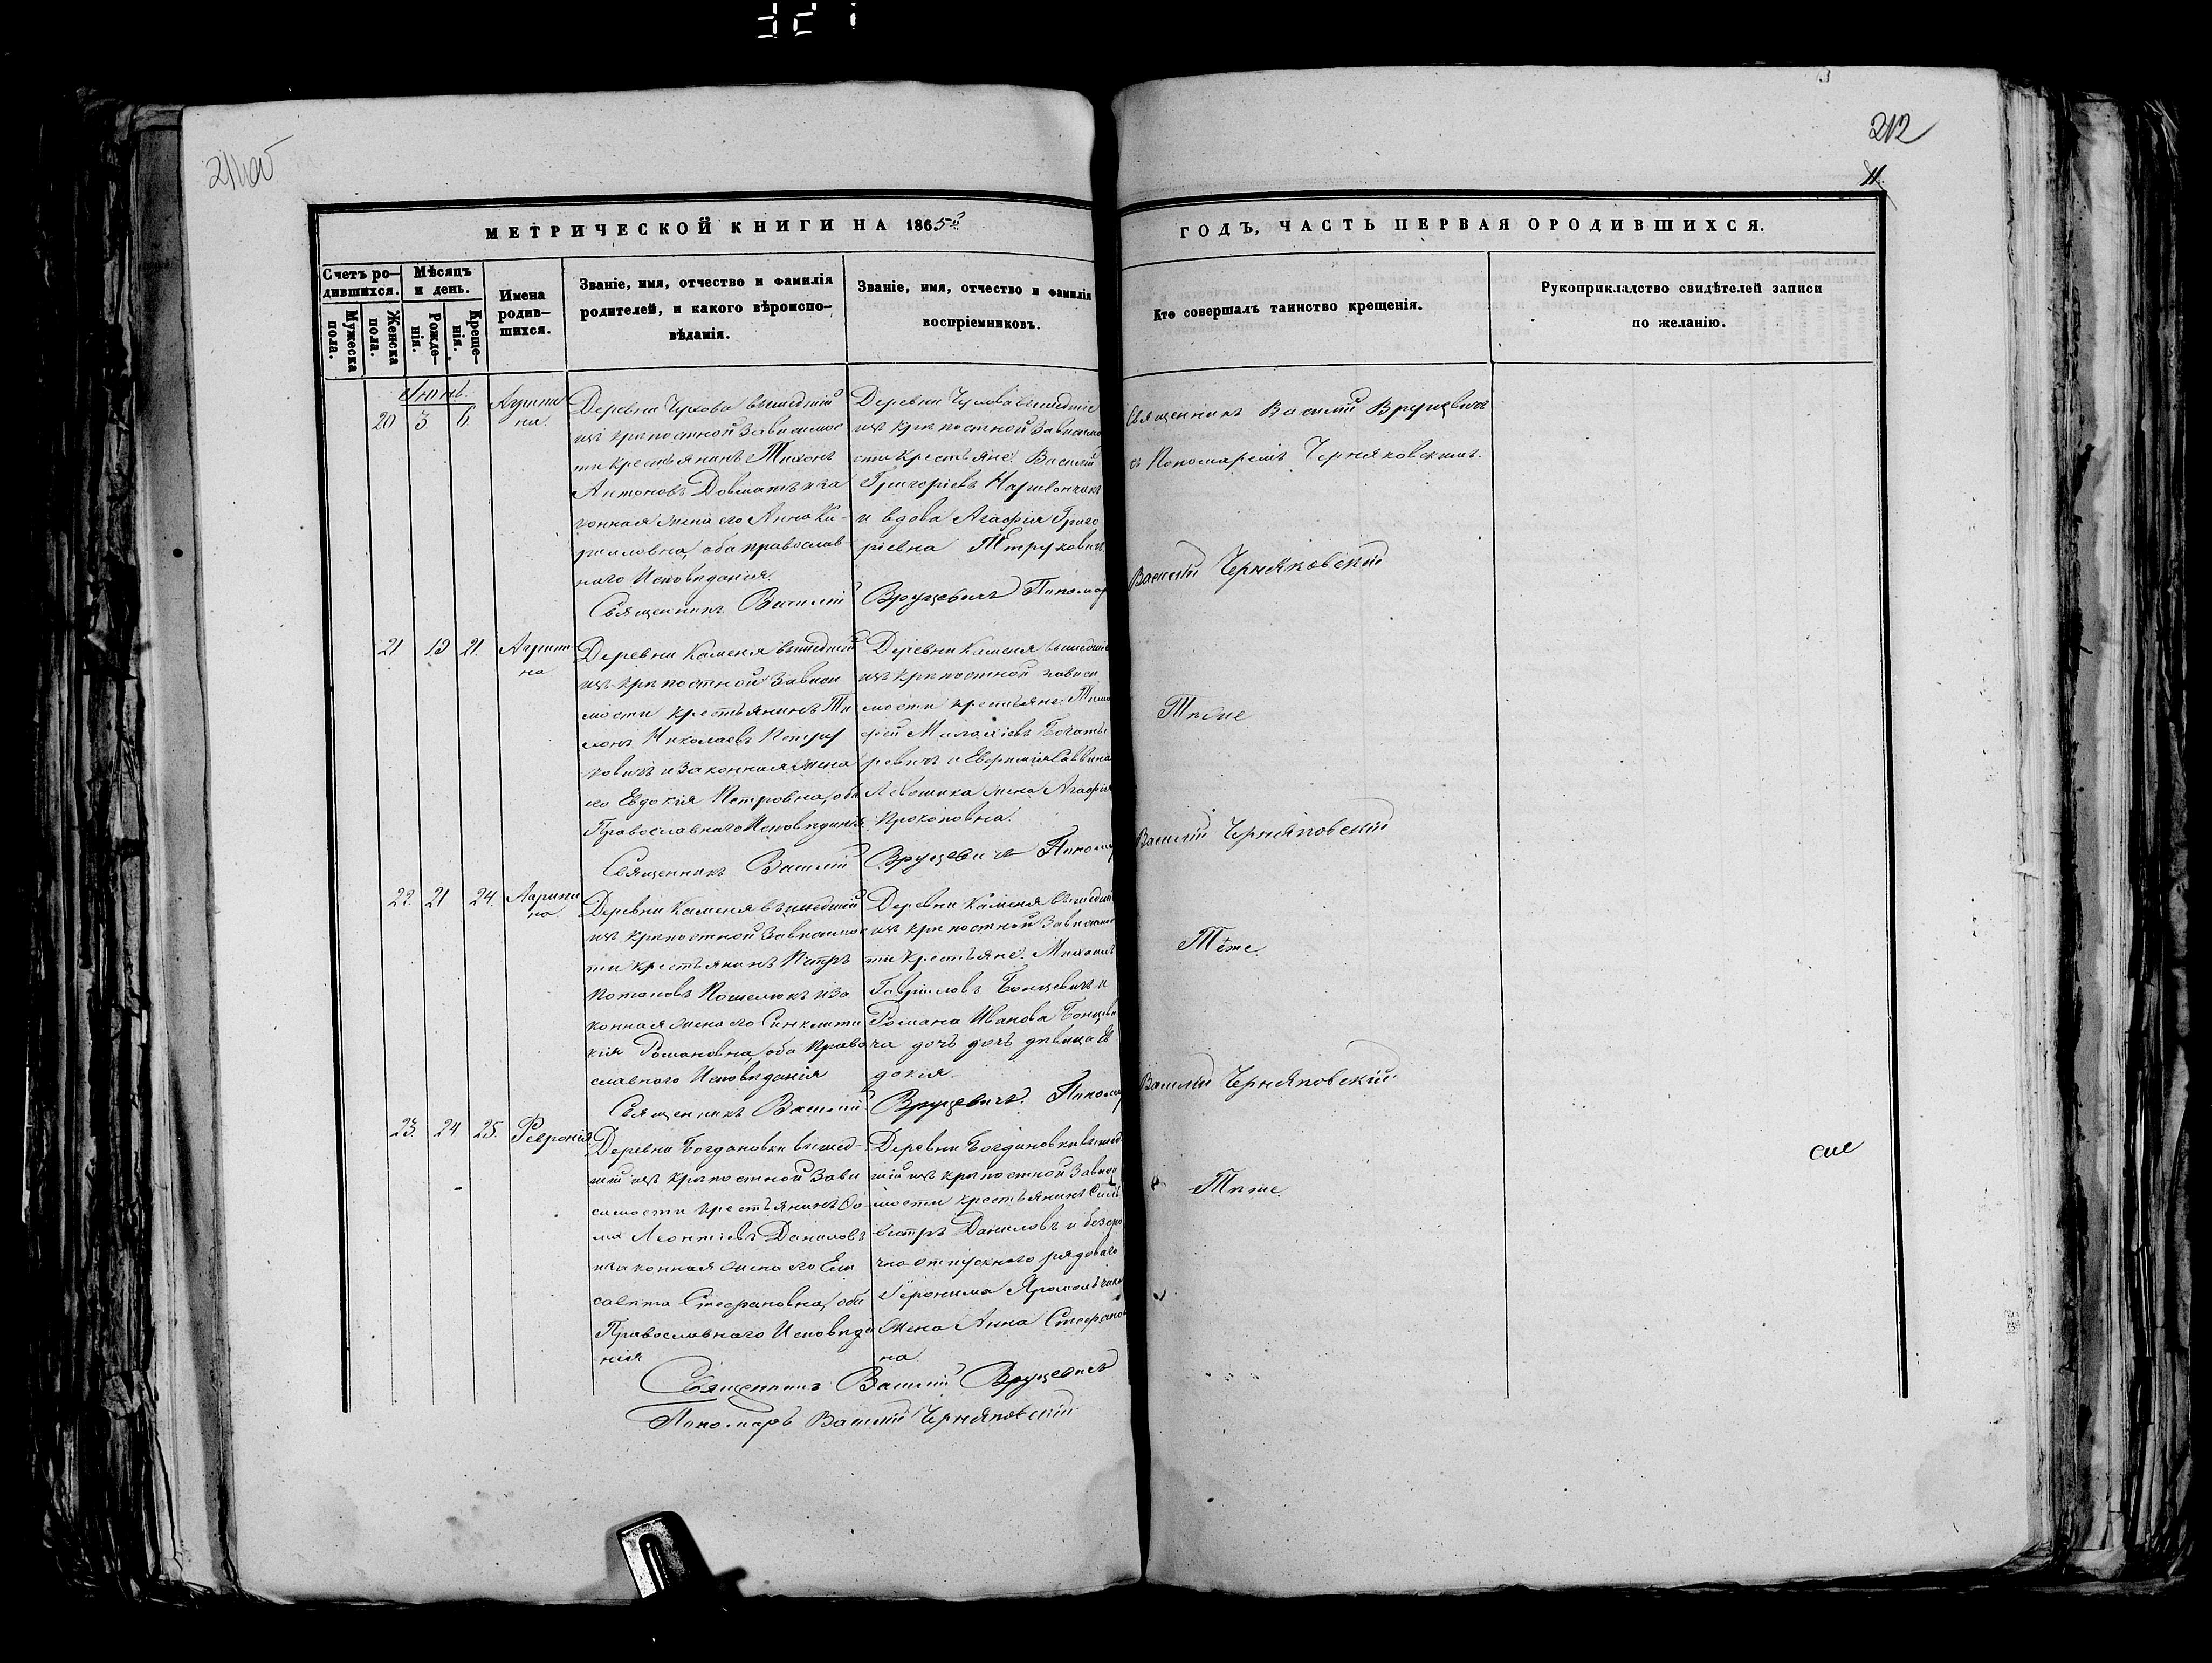 321
211об
212
11.
МЕТРИЧЕСКОЙ КНИГИ НА 1865й
ГОДЪ, ЧАСТЬ ПЕРВАЯ ОРОДИВШИХСЯ.
Счетъ ро-
дившихся.
Мужеска
пола.
Женска
пола.
Мѣсяцъ
и день.
Рожде-
нія.
Креще-
нія.
Имена
родив-
шихся.
Званіе, имя, отчество и фамилія
родителей, и какого вѣроиспо-
вѣданія.
Званіе, имя, отчество и фамилія
воспріемниковъ.
Кто совершалъ таинство крещенія.
Рукоприкладство свидѣтелей записи
по желанію.
Іюнь.
20 3. 6.
на.
Деревни Чухова вышедшій
изъ крѣпостной зависимос
ти крестьянинъ Тихонъ
Антоновъ Довматъ и за
конная жена его Анна Ки-
рилловна, оба православ
наго Исповѣданія.
Деревни Чухова вышедшіе
изъ крѣпостной зависимо
сти крестьяне: Василій
Григоріевъ
и вдова Агафія Григо
ріевна Петруковичъ
Священникъ Василій Вруцевичъ
съ Пономаремъ Черняковскимъ.
Священникъ Василій Вруцевичъ Пономар
Василій Черняковскій
21. 19 21. Агрипи-
на
Деревни Каменя вышедшій
изъ крѣпостной зависи
мости крестьянинъ Ти
монъ Николаевъ Петру
ковичъ и законная жена
его Евдокія Петровна, оба
Православнаго Исповѣданія.
Деревни Каменя вышедшіе
изъ крѣпостной зависи
мости крестьяне: Тимо
фей Малахіевъ Богаты
ревичъ и Саввина
жена Агафія
Прокоповна.
Тѣже
Священникъ Василій Вруцевичъ Пономар
Василій Черняковскій
22. 21 24. Агрипи
на
Деревни Каменя вышедшій
изъ крѣпостной зависимос
ти крестьянинъ Петръ
Потаповъ Пошелюкъ и за
конная жена его Синклити
кія Романовна, оба Право
славнаго Исповѣданія
Деревни Каменя вышедшіе
изъ крѣпостной зависимос
ти крестьяне: Михаилъ
Гавриловъ Бонцевичъ и
Романа Иванова Бонцеви
ча дочь дочь дѣвица Ев
докія.
Тѣже.
Священникъ Василій Вруцевичъ. Пономар
Василій Черняковскій
23. 24 25. Февронія
Деревни Богдановки вышед-
шій изъ крѣпостной зави
симости крестьянинъ Фо
ма Леонтіевъ Даниловъ
и законная жена его Ели
савета Стефановна, оба
Православнаго Исповѣда
нія
Деревни Богдановки вышед
шій изъ крѣпостной зависи
мости крестьянинъ Силь
вестръ Даниловъ и безсро
чно отпускнаго рядоваго
Іеронима
жена Анна Стефанов
на.
Тѣже
Священникъ Василій Вруцевичъ
Пономарь Василій Черняковскій